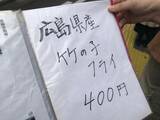 広島県産
竹の子
フライ
400円